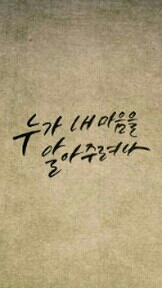 누가 내 마음을
알아주려나